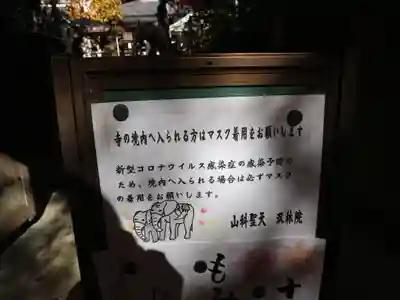 寺の境内へ入られる方はマスク着用をお願いします
新型コロナウイルス感染症の感染予防の
ため、境内へ入られる場合は必ずマスク
の着用をお願いします。
山科聖天 双林院
も
す